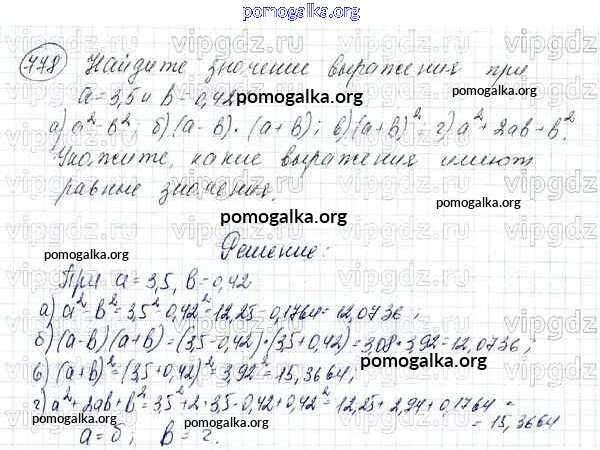 pomogalka.org
778 Найдите значение выражения при
а = 3,5 и в = 0,42 pomogalka.org
а) а² - в² б) (а - в) · (а + в); в) (а + в)² г) а² + 2ав + в².
Укажите, какие выражения имеют
равные значения.
pomogalka.org
pomogalka.org Решение: pomogalka.org
При а = 3,5, в = 0,42
а) а² - в² = 3,5² - 0,42² = 12,25 - 0,1764 = 12,0736;
б) (а - в)(а + в) = (3,5 - 0,42) · (3,5 + 0,42) = 3,08 · 3,92 = 12,0736;
в) (а + в)² = (3,5 + 0,42)² = 3,92² = 15,3664; pomogalka.org
г) а² + 2ав + в² = 3,5² + 2 · 3,5 · 0,42 + 0,42² = 12,25 + 2,94 + 0,1764 =
= 15,3664
а = б; в = г.
pomogalka.org